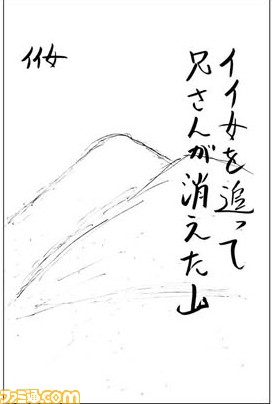 イイ女を追って
兄さんが消えた山
イイ女
ファミ通.com